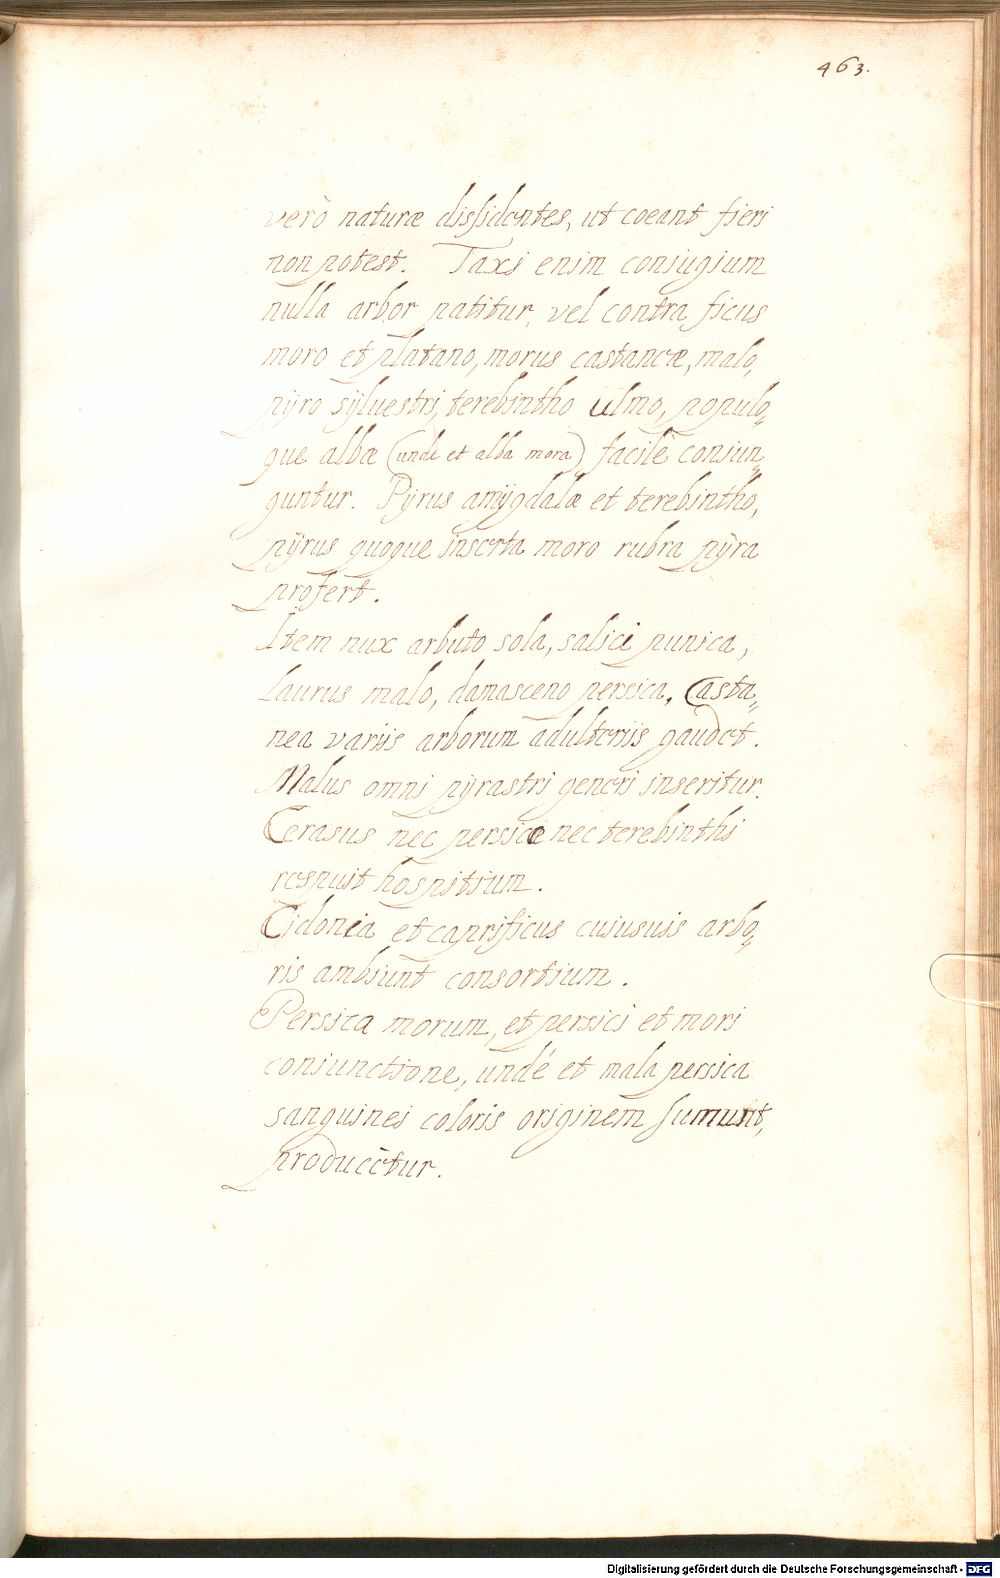 463.
verò naturæ dissidentes, ut coeant fieri
non potest. Taxi enim coniugium
nulla arbor patitur, vel contra ficus
moro et platano, morus castaneæ, malo,
pÿro sÿluestri, terebintho ulmo, populo„
que albæ (unde et alba mora) facilè coniun„
guntur. Pÿrus amÿgdalæ et terebintho,
pÿrus quoque inserta moro rubra pÿra
profert.
Item nux arbuto sola, salici punica,
Laurus malo, damasceno persica, Casta„
nea variis arborum adulteriis gaudet.
Malus omni pÿrastri generi inseritur.
Cerasus nec persicæ nec terebinthi
respuit hospitium.
Cidonia et caprificus cuiusuis arbo„
ris ambiunt consortium.
Persica morum, et persici et mori
coniunctione, undé et mala persica
sanguinei coloris originem sumunt,
producẽtur.
Digitalisierung gefördert durch die Deutsche Forschungsgemeinschaft - DFG